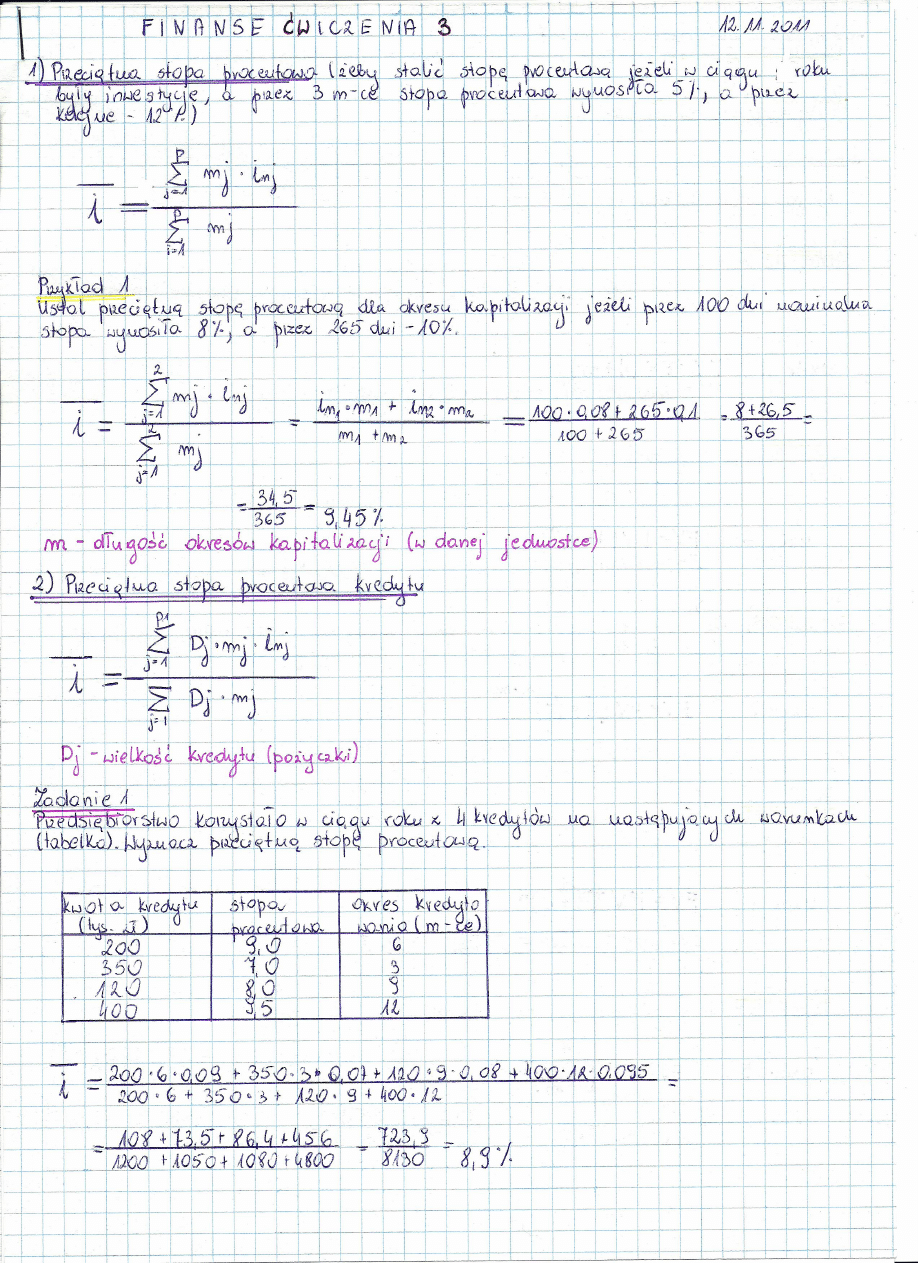 FINANSE ĆWICZENIA 3 12.11.2011
1) Przeciętna stopa procentowa (żeby stalić stopę procentową jeżeli w ciągu 1 roku
były inwestycje, a przez 3 m-ce stopa procentowa wynosiła 5%, a przez
kolejne - 12%.)
i = ∑ mj · inj / ∑ mj
p j=1 p i=1
Przykład 1
Ustal przeciętną stopę procentową dla okresu kapitalizacji jeżeli przez 100 dni nominalna
stopa wynosiła 8%, a przez 265 dni - 10%.
i = ∑ mj · inj / ∑ mj = in1 · m1 + in2 · m2 / m1 + m2 = 100 · 0,08 + 265 · 0,1 / 100 + 265 = 8 + 26,5 / 365 =
2 j=1 2 j=1
= 34,5 / 365 = 9,45%
m - długość okresów kapitalizacji (w danej jednostce)
2) Przeciętna stopa procentowa kredytu
i = ∑ Dj · mj · inj / ∑ Dj · mj
j=1 j=1
Dj - wielkość kredytu (pożyczki)
Zadanie 1
Przedsiębiorstwo korzystało w ciągu roku z 4 kredytów na następujących warunkach
(tabelka). Wyznacz przeciętną stopę procentową.
kwota kredytu stopa okres kredyto
(tys. zł) procentowa wania (m-ce)
200 9,0 6
350 7,0 3
120 8,0 9
400 9,5 12
i = 200 · 6 · 0,09 + 350 · 3 · 0,07 + 120 · 9 · 0,08 + 400 · 12 · 0,095 =
200 · 6 + 350 · 3 + 120 · 9 + 400 · 12
= 108 + 73,5 + 86,4 + 456 / 1200 + 1050 + 1080 + 4800 = 723,9 / 8130 = 8,9%